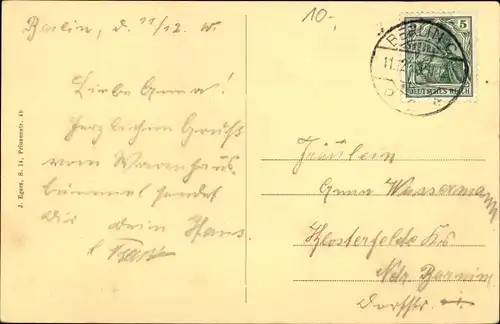 10.-
Berlin, d. 11/12.
Liebe Anna!
Herzlichen Gruß
vom Warenhaus-
bummel sendet
Dir Dein Hans
J. Egsen, S. 14, Prinzenstr. 49
BERLIN C
5
DEUTSCHES REICH
Fräulein
Anna Wassermann
Klosterfelde
Ndr. Barnim
Dorfstr.